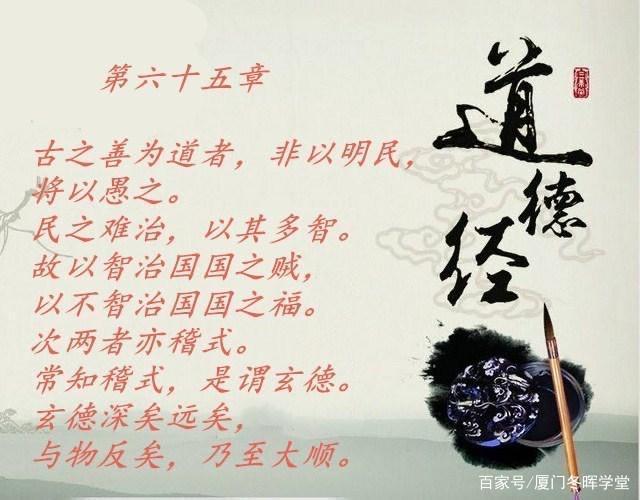 第六十五章
古之善为道者，非以明民，
将以愚之。
民之难治，以其多智。
故以智治国国之贼，
以不智治国国之福。
次两者亦稽式。
常知稽式，是谓玄德。
玄德深矣远矣，
与物反矣，乃至大顺。
道德经
百家号/厦门冬晖学堂